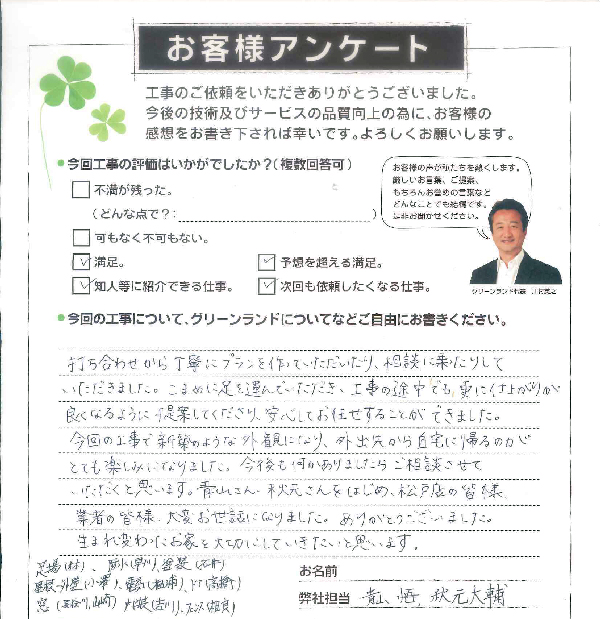 お客様アンケート
工事のご依頼をいただきありがとうございました。
今後の技術及びサービスの品質向上の為に、お客様の
感想をお書き下されば幸いです。よろしくお願いします。
今回工事の評価はいかがでしたか？（複数回答可）
お客様の声が私たちを熱くします。
厳しいお言葉、ご提案、
もちろんお誉めの言葉など
どんなことでも結構です。
是非お聞かせください。
不満が残った。
（どんな点で？：　　　　　　　）
可もなく不可もない。
満足。
予想を超える満足。
知人等に紹介できる仕事。
次回も依頼したくなる仕事。
グリーンランド代表
今回の工事について、グリーンランドについてなどご自由にお書きください。
打ち合わせから丁寧にプランを作っていただいたり、相談に乗ったりして
いただきました。こまめに足を運んでいただき、工事の途中でも更に仕上がりが
良くなるように提案してくださり、安心してお任せすることができました。
今回の工事で新築のような外観になり、外出先から自宅に帰るのがとても
とても楽しみになりました。今後も何かありましたらご相談させて
いただくと思います。青山さん、秋元さんをはじめ、松戸店の皆様、
業者の皆様、大変お世話になりました。ありがとうございました。
生まれ変わったお家を大切にしていきたいと思います。
足場
お名前
弊社担当 青山 悟、秋元大輔